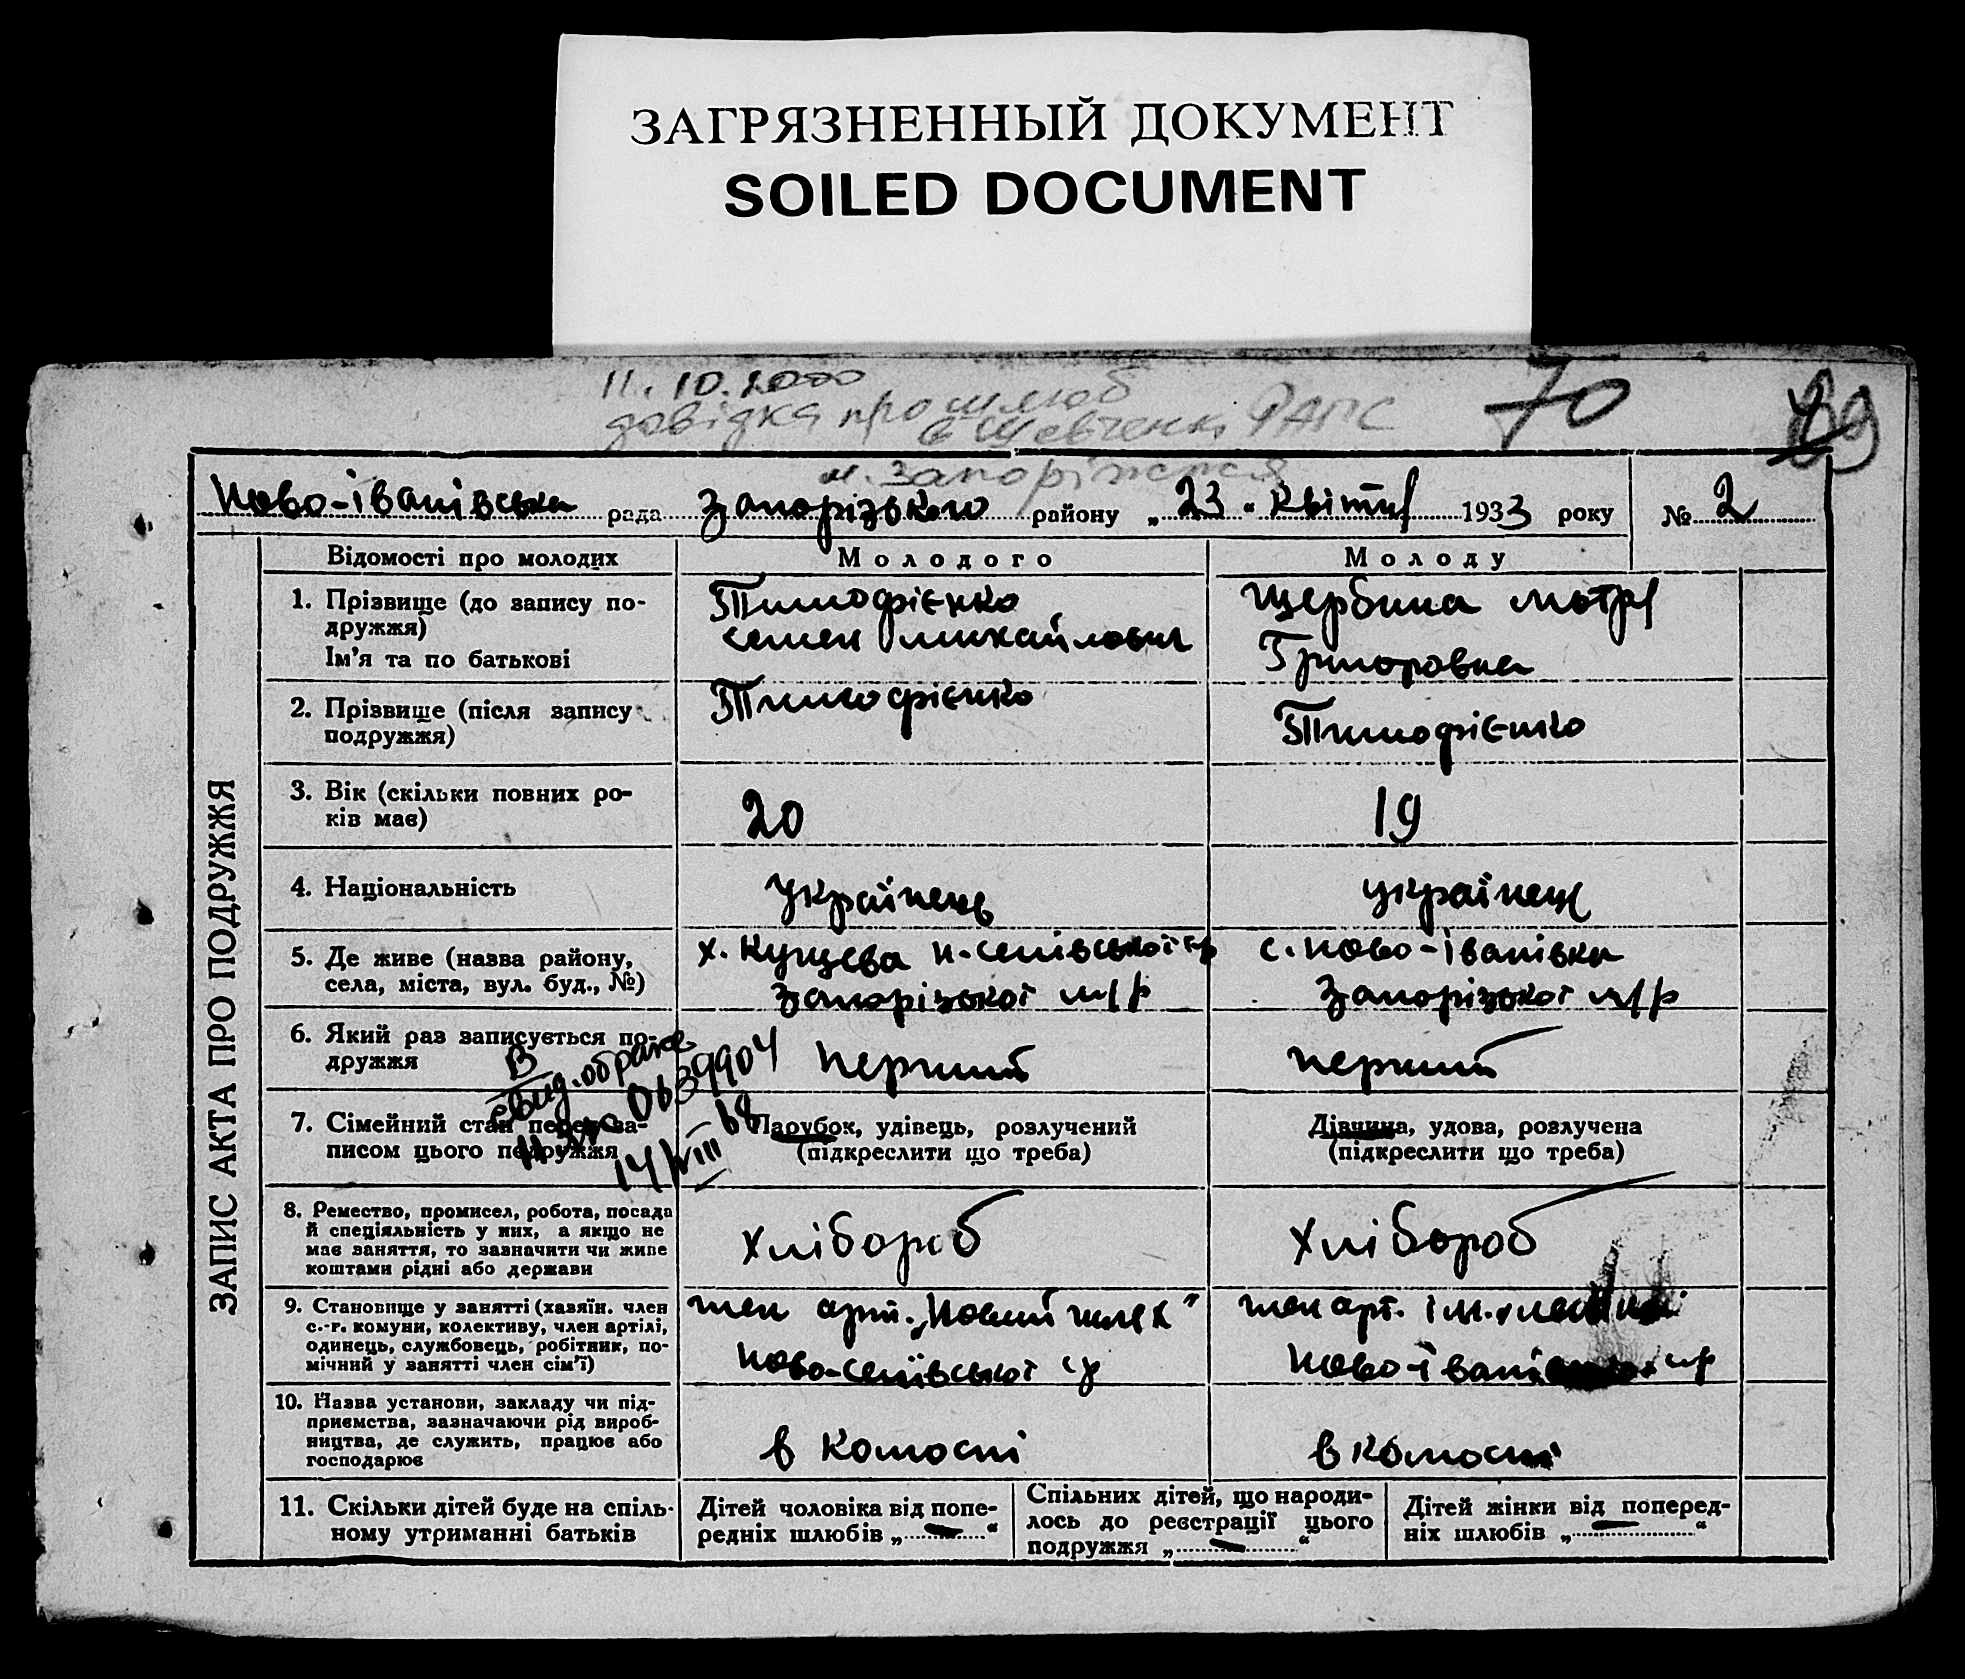 ЗАГРЯЗНЕННЫЙ ДОКУМЕНТ
SOILED DOCUMENT
11.10.2000
довідка про шлюб
в Шевченк. РАГС
м. Запоріжжя
70
Ново-Іванівська рада Запорізького району „ 23 “ Квітня 1933 року № 2
ЗАПИС АКТА ПРО ПОДРУЖЖЯ
Відомості про молодих Молодого Молоду
1. Прізвище (до запису по-
дружжя)
Ім'я та по батькові
Тимофієнко
Семен Михайлович
Щербина Мотря
Григоровна
2. Прізвище (після запису
подружжя)
Тимофієнко
Тимофієнко
3. Вік (скільки повних ро-
ків має)
20
19
4. Національність
Українець
українец
5. Де живе (назва району,
села, міста, вул. буд., №)
х. Кущева
Запорізької м/р
с. Ново-Іванівка
Запорізької м/р
6. Який раз записується по-
дружжя
перший
перший
7. Сімейний стан перед за-
писом цього подружжя
Парубок, удівець, розлучений
(підкреслити що треба)
Дівчина, удова, розлучена
(підкреслити що треба)
В
свид. о браке
0639904
14/VIII 68
8. Ремество, промисел, робота, посада
й спеціяльність у них, а якщо не
має заняття, то зазначити чи живе
коштами рідні або держави
Хлібороб
Хлібороб
9. Становище у занятті (хазяїн. член
с.-г. комуни, колективу, член артілі,
одинець, службовець, робітник, по-
мічний у занятті член сім'ї)
член арт. „Новий шлях“
член арт. ім.
Ново-Іванів
10. Назва установи, закладу чи під-
приємства, зазначаючи рід вироб-
ництва, де служить, працює або
господарює
в колоспі
в колоспі
11. Скільки дітей буде на спіль-
ному утриманні батьків
Дітей чоловіка від попе-
редніх шлюбів „ — “
Спільних дітей, що народи-
лось до реєстрації цього
подружжя „ — “
Дітей жінки від поперед-
ніх шлюбів „ — “